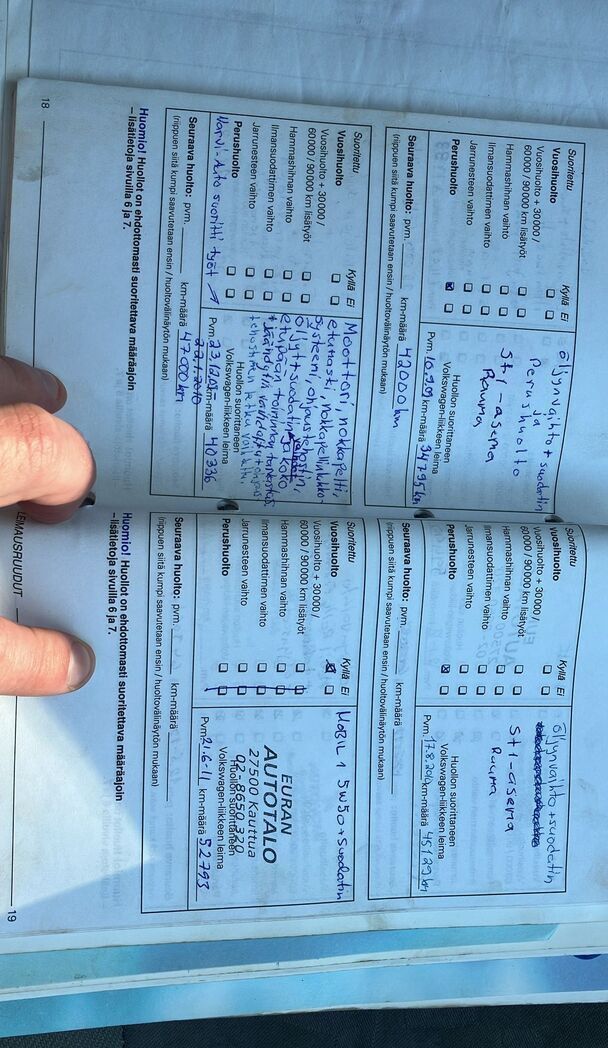 Suoritettu
Kyllä Ei
Vuosihuolto
Vuosihuolto + 30000 /
60000 / 90000 km lisätyöt
Hammashihnan vaihto
Ilmansuodattimen vaihto
Jarrunesteen vaihto
Perushuolto
öljynvaihto + suodatin
ja
Perushuolto
St1-asema
Rauma
Huollon suorittaneen
Volkswagen-liikkeen leima
Pvm. km-määrä 34795 km
Seuraava huolto: pvm. km-määrä 42000 km
(riippuen siitä kumpi saavutetaan ensin / huoltovälinäytön mukaan)
Suoritettu
Kyllä Ei
Vuosihuolto
Vuosihuolto + 30000 /
60000 / 90000 km lisätyöt
Hammashihnan vaihto
Ilmansuodattimen vaihto
Jarrunesteen vaihto
Perushuolto
Moottori, nokkapelti,
etumaski,
öljyt + suodatin ja koko
Huollon suorittaneen
Volkswagen-liikkeen leima
Pvm. km-määrä 40336
Seuraava huolto: pvm. km-määrä 47000 km
(riippuen siitä kumpi saavutetaan ensin / huoltovälinäytön mukaan)
Huomio! Huollot on ehdottomasti suoritettava määräajoin
– lisätietoja sivuilla 6 ja 7.
18
Suoritettu
Kyllä Ei
Vuosihuolto
Vuosihuolto + 30000 /
60000 / 90000 km lisätyöt
Hammashihnan vaihto
Ilmansuodattimen vaihto
Jarrunesteen vaihto
Perushuolto
Öljynvaihto + suodatin
St1-asema
Rauma
Huollon suorittaneen
Volkswagen-liikkeen leima
Pvm. 17.8.2010 km-määrä 45129 km
Seuraava huolto: pvm. km-määrä
(riippuen siitä kumpi saavutetaan ensin / huoltovälinäytön mukaan)
Suoritettu
Kyllä Ei
Vuosihuolto
Vuosihuolto + 30000 /
60000 / 90000 km lisätyöt
Hammashihnan vaihto
Ilmansuodattimen vaihto
Jarrunesteen vaihto
Perushuolto
MOBIL 1 5W50 + Suodatin
EURAN
AUTOTALO
27500 Kauttua
02-8650 320
Huollon suorittaneen
Volkswagen-liikkeen leima
Pvm. 21.6-11 km-määrä 52793
Seuraava huolto: pvm. km-määrä
(riippuen siitä kumpi saavutetaan ensin / huoltovälinäytön mukaan)
Huomio! Huollot on ehdottomasti suoritettava määräajoin
– lisätietoja sivuilla 6 ja 7.
19
LEIMAUSRUUDUT